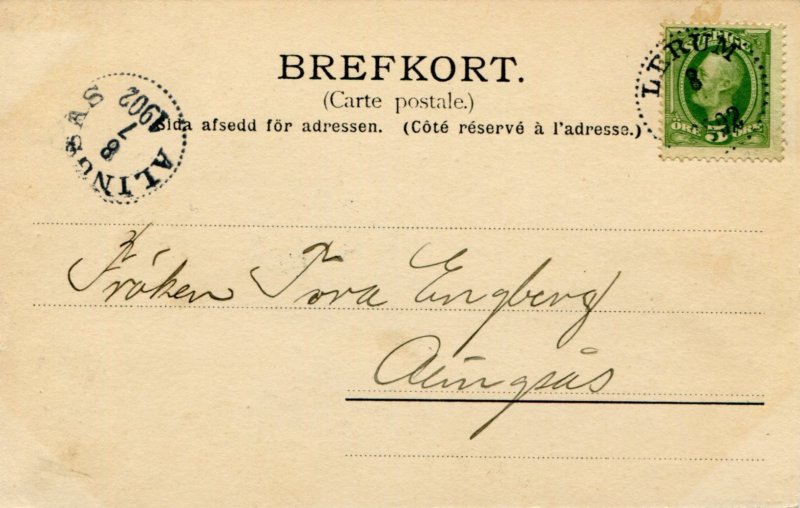 BREFKORT.
(Carte postale.)
Sida afsedd för adressen. (Côté réservé à l'adresse.)
ALINGSÅS
8
7
1902
LERUM
8
ÖRE 5 ÖRE
Fröken Tora Engberg
Alingsås